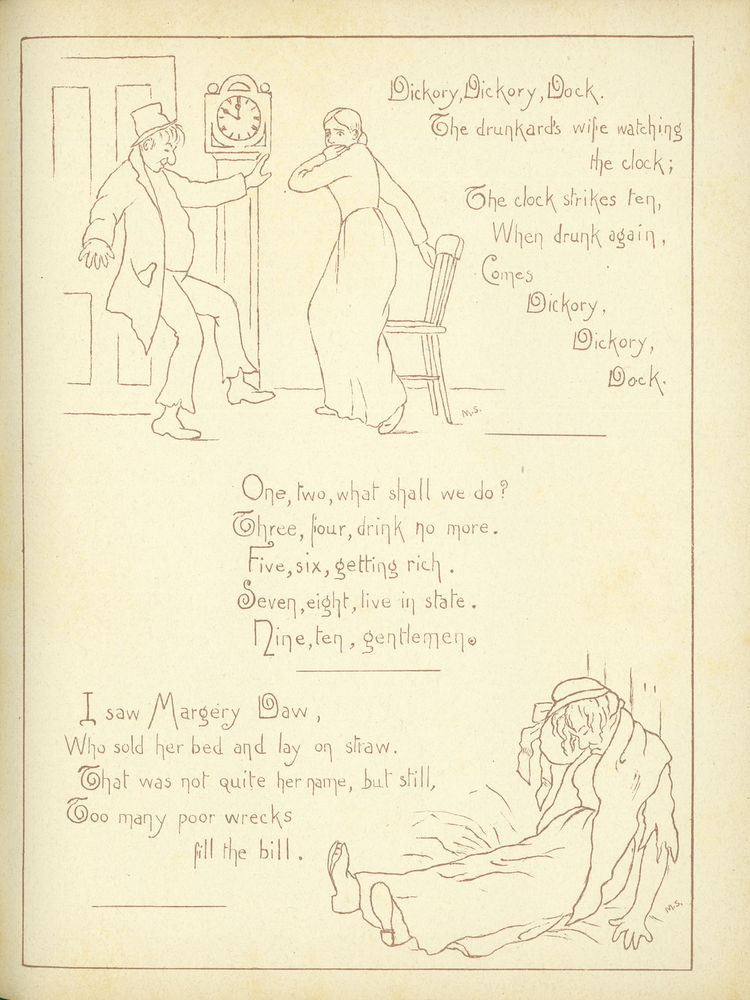 Dickory, Dickory, Dock.
The drunkard's wife watching
the clock;
The clock strikes ten,
When drunk again,
Comes
Dickory,
Dickory,
Dock.
M.S.
One, two, what shall we do?
Three, four, drink no more.
Five, six, getting rich.
Seven, eight, live in state.
Nine, ten, gentlemen.
I saw Margery Daw,
Who sold her bed and lay on straw.
That was not quite her name, but still,
Too many poor wrecks
fill the bill.
M.S.